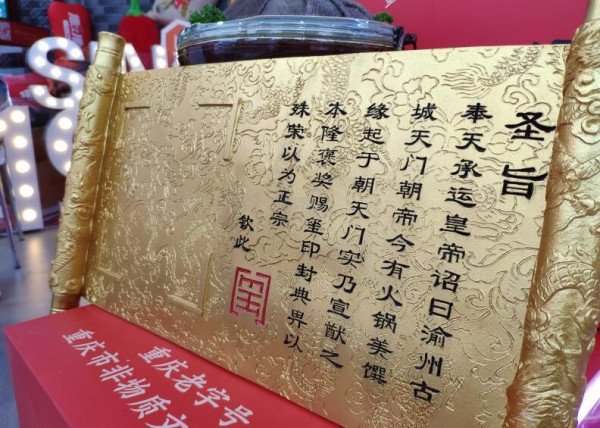 圣旨
奉天承运皇帝诏曰渝州古
城天门朝帝今有火锅美馔
缘起于朝天门实乃宣猷之
本隆褒奖赐玺印封典畀以
殊荣以为正宗
钦此
重庆老字号
重庆市非物质文